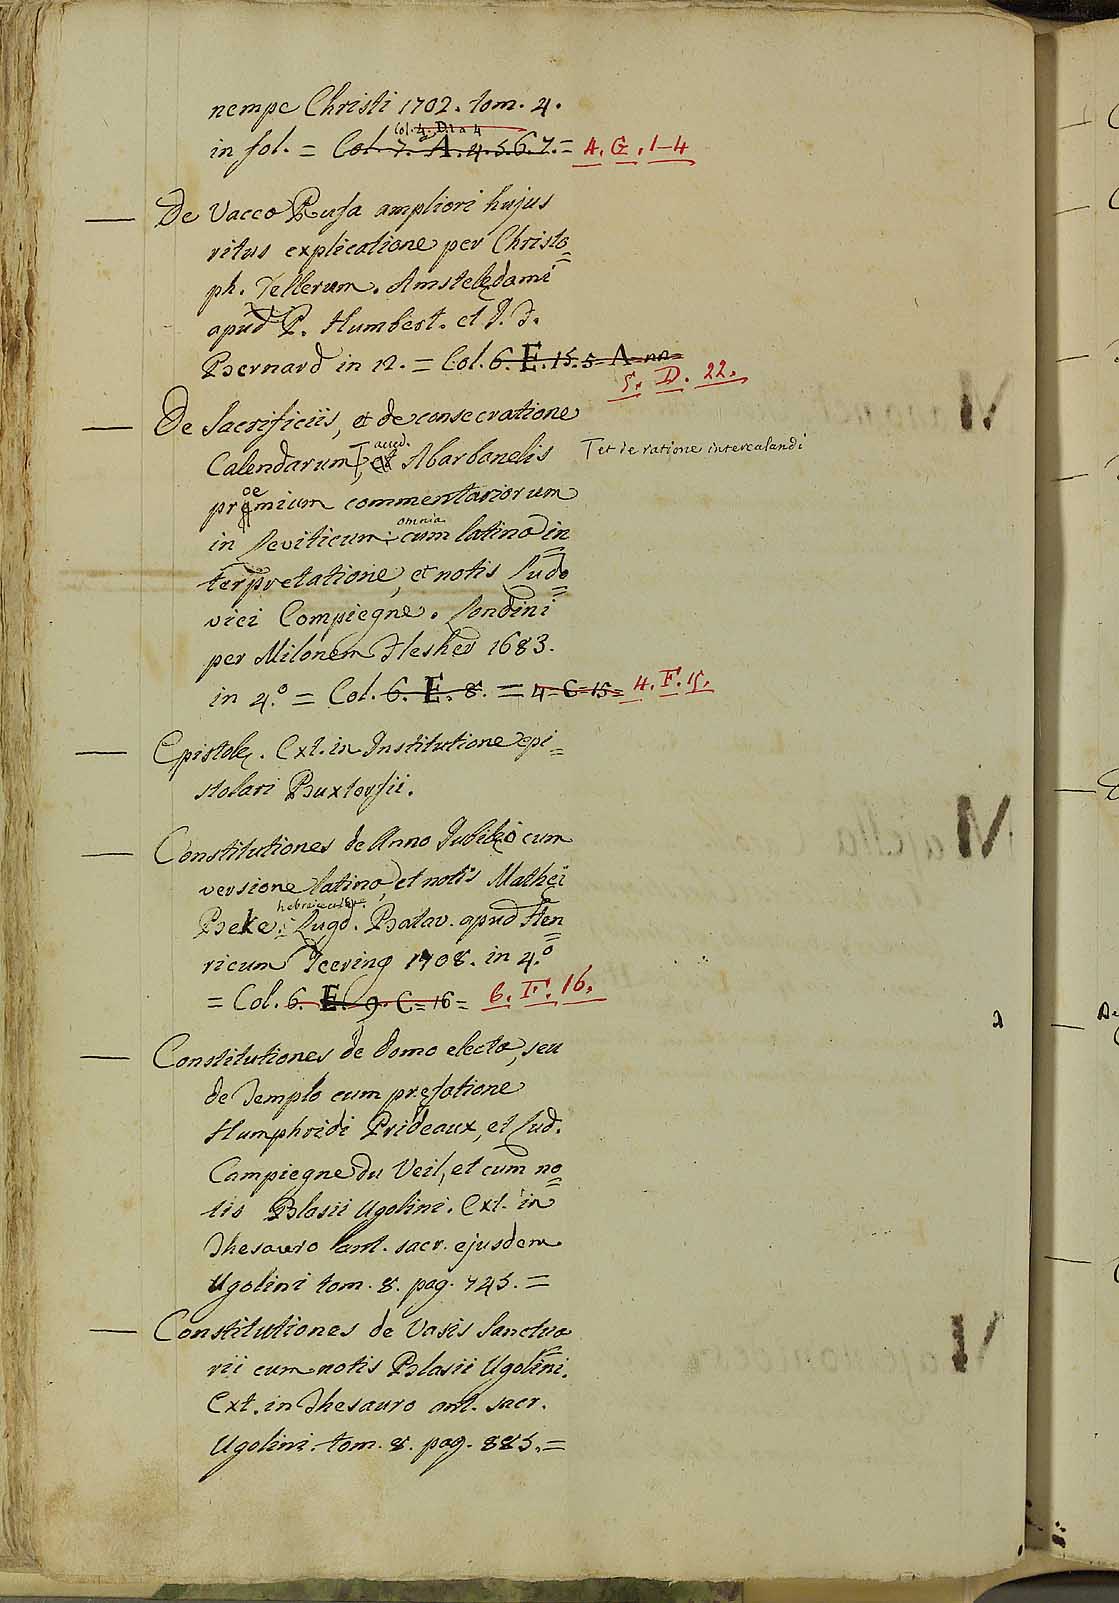 nempe Christi 1702. tom. 4.
Col. 4. D. 1 a 4
in fol. = Col. 7. A. 4. 5. 6. 7. = A. G. 1-4
De Vacca Rufa ampliori hujus
ritus explicatione per Christo=
ph. Zellerum. Amsteledami
apud P. Humbert. et J. F.
Bernard in 12. = Col. 6. E. 15. 5= A=
5. D. 22.
De Sacrificiis, et de consecratione
Calendarum, acced. Abarbanelis
et de ratione intercalandi
proemium commentariorum
in Leviticum: omnia cum latina in=
terpretatione, et notis Ludo=
vici Compiegne. Londini
per Milonem Flesher 1683.
in 4.º = Col. 6. E. 8. = 4=C=15= 4. F. 15.
Epistolę. Ext. in Institutione epi=
stolari Buxtorfii.
Constitutiones de Anno Jubilęo cum
versione latina, et notis Mathęi
Beke: hebraice Lugd. Batav. apud Hen=
ricum Teering 1708. in 4.º
= Col. 6. E. 9. C=16= 6. F. 16.
Constitutiones de domo electa, seu
de Templo cum pręfatione
Humphridi Prideaux, et Lud.
Campiegne du Veil, et cum no=
tis Blasii Ugolini. Ext. in
Thesauro ant. sacr. ejusdem
Ugolini tom. 8. pag. 745. =
Constitutiones de Vasis Sanctua=
rii cum notis Blasii Ugolini.
Ext. in Thesauro ant. sacr.
Ugolini. tom. 8. pag. 885. =